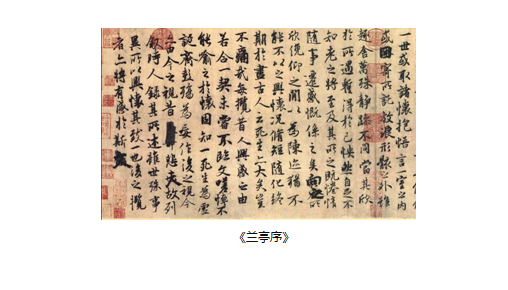 一世或取諸懷抱悟言一室之内
或因寄所託放浪形骸之外雖
趣舍萬殊靜躁不同當其欣
於所遇蹔得於己怏然自足不
知老之將至及其所之既惓情
隨事遷感慨係之矣向之所
欣俛仰之閒以為陳迹猶不
能不以之興懷況脩短隨化終
期於盡古人云死生亦大矣豈
不痛哉每攬昔人興感之由
若合一契未嘗不臨文嗟悼不
能喻之於懷固知一死生為虛
誕齊彭殤為妄作後之視今
亦由今之視昔悲夫故列
敘時人錄其所述雖世殊事
異所以興懷其致一也後之攬
者亦將有感於斯文
《兰亭序》